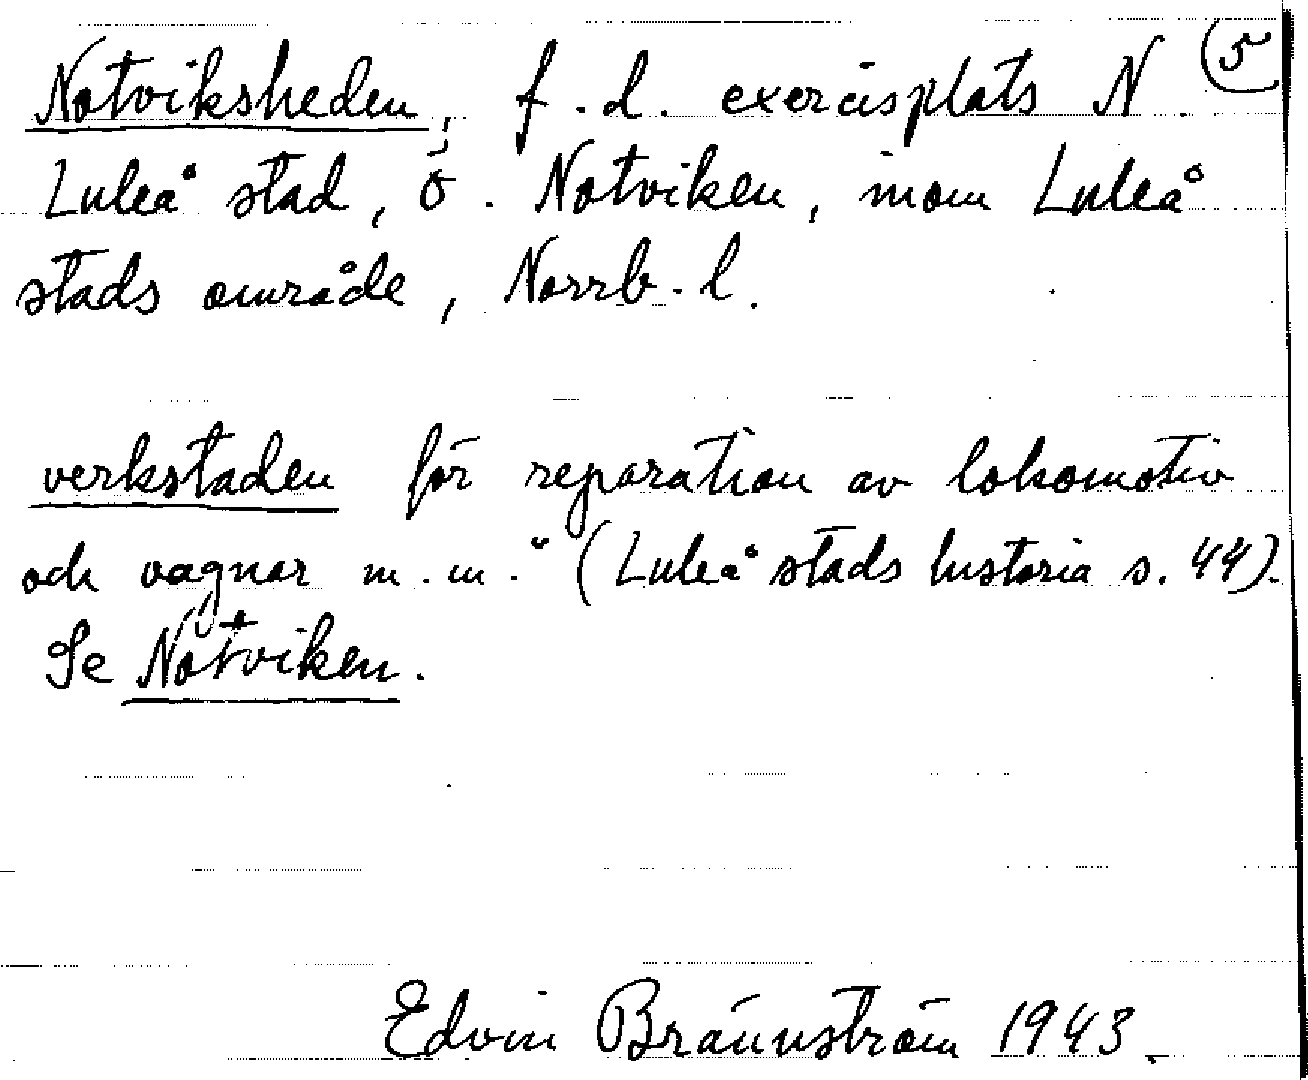 Notviksheden, f.d. exercisplats N. 5
Luleå stad, ö. Notviken, inom Luleå
stads område, Norrb. l.
verkstaden för reparation av lokomotiv
och vagnar m.m." (Luleå stads historia s. 44).
Se Notviken.
Edvin Brännström 1943.